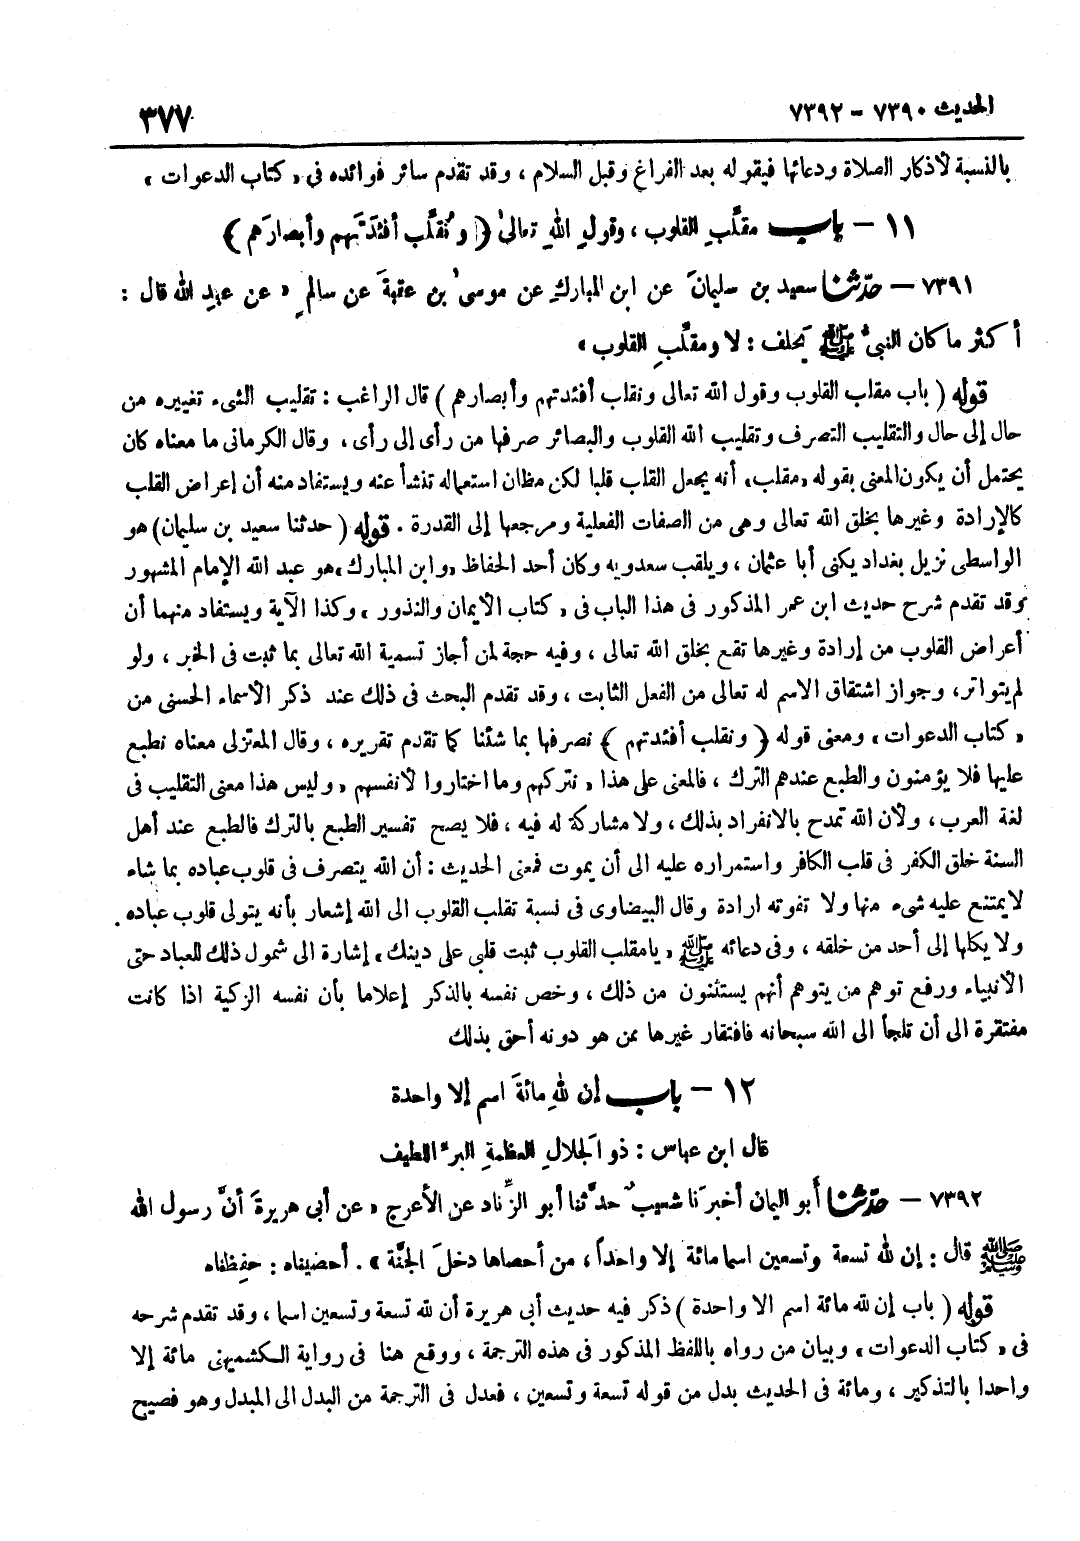 الحديث ٧٣٩٠ - ٧٣٩٢
٣٧٧
بالنسبة لأذكار الصلاة ودعائها فيقوله بعد الفراغ وقبل السلام ، وقد تقدم سائر فوائده فى « كتاب الدعوات »
١١ - باب مقلِّبِ القلوب ، وقولِ اللهِ تعالىٰ ﴿ ونُقلِّب أفئدَتَهم وأبصارَهم ﴾
٧٣٩١ - حدّثنا سعيد بن سليمانَ عن ابن المباركِ عن موسىٰ بن عقبةَ عن سالمٍ « عن عبدِ الله قال :
أكثر ما كان النبىُّ ﷺ يَحلف : لا ومقلِّبِ القلوب »
قوله ( باب مقلب القلوب وقول الله تعالى ونقلب أفئدتهم وأبصارهم ) قال الراغب : تقليب الشىء تغييره من
حال إلى حال والتقليب التصرف وتقليب الله القلوب والبصائر صرفها من رأى إلى رأى ، وقال الكرمانى ما معناه كان
يحتمل أن يكون المعنى بقوله «مقلب» أنه يجعل القلب قلبا لكن مظان استعماله تنشأ عنه ويستفاد منه أن إعراض القلب
كالإرادة وغيرها بخلق الله تعالى وهى من الصفات الفعلية ومرجعها إلى القدرة . قوله ( حدثنا سعيد بن سليمان) هو
الواسطى نزيل بغداد يكنى أبا عثمان ، ويلقب سعدويه وكان أحد الحفاظ «وابن المبارك» هو عبد الله الإمام المشهور
وقد تقدم شرح حديث ابن عمر المذكور فى هذا الباب فى « كتاب الايمان والنذور » وكذا الآية ويستفاد منهما أن
أعراض القلوب من إرادة وغيرها تقع بخلق الله تعالى ، وفيه حجة لمن أجاز تسمية الله تعالى بما ثبت فى الخبر ، ولو
لم يتواتر، وجواز اشتقاق الاسم له تعالى من الفعل الثابت ، وقد تقدم البحث فى ذلك عند ذكر الأسماء الحسنى من
« كتاب الدعوات » ومعنى قوله ﴿ ونقلب أفئدتهم ﴾ نصرفها بما شئنا كما تقدم تقريره ، وقال المعتزلى معناه نطبع
عليها فلا يؤمنون والطبع عندهم الترك ، فالمعنى على هذا « نتركهم وما اختاروا لأنفسهم » وليس هذا معنى التقليب فى
لغة العرب ، ولأن الله تمدح بالانفراد بذلك ، ولا مشاركة له فيه ، فلا يصح تفسير الطبع بالترك فالطبع عند أهل
السنة خلق الكفر فى قلب الكافر واستمراره عليه الى أن يموت فمعنى الحديث : أن الله يتصرف فى قلوب عباده بما شاء
لا يمتنع عليه شىء منها ولا تفوته ارادة وقال البيضاوى فى نسبة تقلب القلوب الى الله إشعار بأنه يتولى قلوب عباده
ولا يكلها إلى أحد من خلقه ، وفى دعائه ﷺ « يامقلب القلوب ثبت قلبى على دينك » إشارة الى شمول ذلك للعباد حتى
الأنبياء ورفع توهم من يتوهم أنهم يستثنون من ذلك ، وخص نفسه بالذكر إعلاما بأن نفسه الزكية اذا كانت
مفتقرة الى أن تلجأ الى الله سبحانه فافتقار غيرها ممن هو دونه أحق بذلك
١٢ - باب إن للهِ مائةَ اسمٍ إلا واحدة
قال ابن عباس : ذو الجَلالِ العظمةِ البرُّ اللطيف
٧٣٩٢ - حدّثنا أبو اليمان أخبرَنا شعيبٌ حدَّثنا أبو الزِّناد عن الأعرج « عن أبى هريرةَ أنَّ رسول الله
ﷺ قال : إن لله تسعة وتسعين اسما مائة إلا واحداً ، من أحصاها دخلَ الجنَّة » . أحصيناه : حفِظناه
قوله ( باب إن لله مائة اسم الا واحدة ) ذكر فيه حديث أبى هريرة أن لله تسعة وتسعين اسما ، وقد تقدم شرحه
فى « كتاب الدعوات » وبيان من رواه باللفظ المذكور فى هذه الترجمة ، ووقع هنا فى رواية الكشميهنى مائة إلا
واحدا بالتذكير ، ومائة فى الحديث بدل من قوله تسعة وتسعين ، فعدل فى الترجمة من البدل الى المبدل وهو فصيح